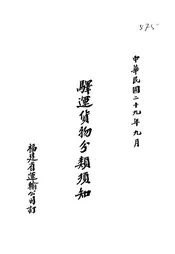 575
中華民國二十九年九月
驛運貨物分類須知
福建省運輸公司訂